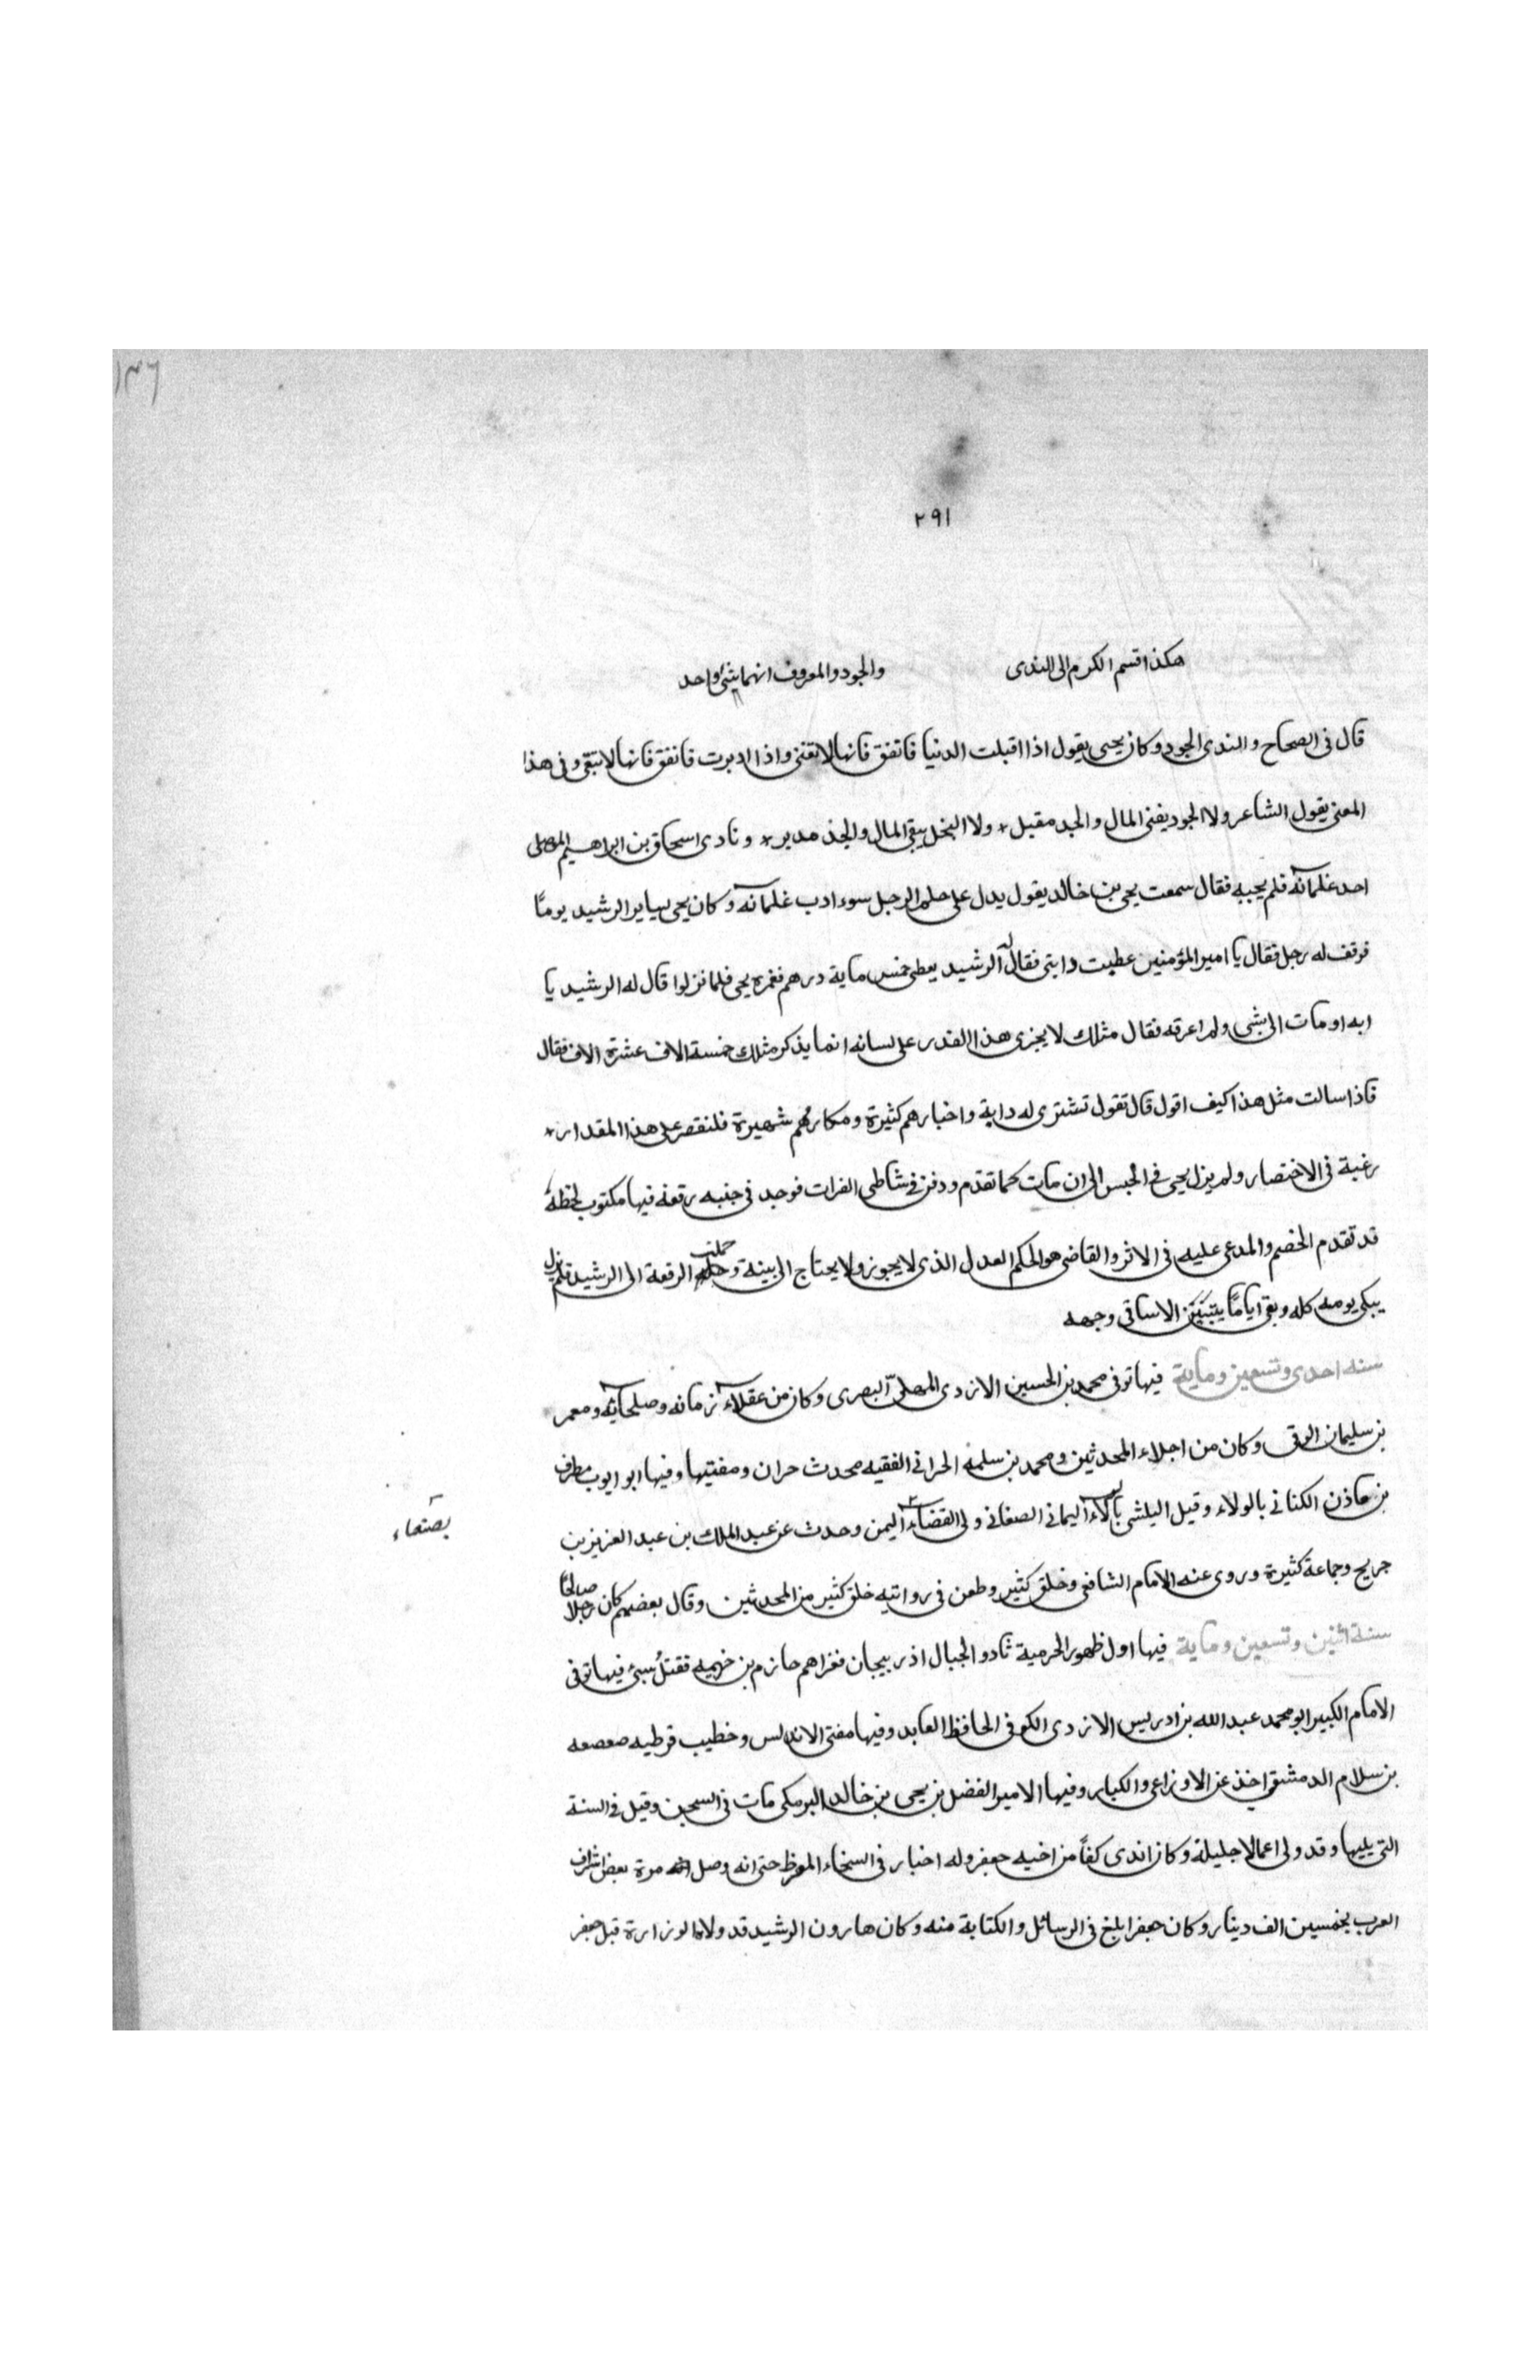 ١٣٦
٢٩١
هكذا قسم الكرم الى الندى والجود والمعروف انهما شئ واحد
قال فى الصحاح والندى الجود وكان يحيى يقول اذا اقبلت الدنيا فانفق فانها لا تفنى واذا ادبرت فانفق فانها لا تبقى وفى هذا
المعنى يقول الشاعر ولا الجود يفنى المال والجد مقبل * ولا البخل يبقى المال والجد مدبر * ونادى اسحاق بن ابراهيم الموصلى
احد غلمانه فلم يجبه فقال سمعت يحيى بن خالد يقول يدل على حلم الرجل سوء ادب غلمانه وكان يحيى يساير الرشيد يوما
فوقف له رجل فقال يا امير المؤمنين عطبت دابتى فقال له الرشيد يعطى خمس ماية درهم فغمزه يحيى فلما نزلوا قال له الرشيد يا
ابه اومات الى بشى ولم اعرفه فقال مثلك لا يجزى هذا القدر على لسانه انما يذكر مثلك خمسة الاف عشرة الاف فقال
فاذا سالت مثل هذا كيف اقول قال تقول تشترى له دابة واخبارهم كثيرة ومكارمهم شهيرة فلنقصر على هذا المقدار *
رغبة فى الاختصار ولم يزل يحيى فى الحبس الى ان مات كما تقدم ودفن فى شاطى الفرات فوجد فى جنبه رقعة فيها مكتوب بخطه
قد تقدم الخصم والمدعى عليه فى الاثر والقاضى هو الحكم العدل الذى لا يجوز ولا يحتاج الى بينة وحملت الرقعة الى الرشيد فلم يزل
يبكى يومه كله وبقى اياما يتبين الاسا فى وجهه
سنه احدى وتسعين وماية فيها توفى محمد بن الحسين الازدى المهلبى البصرى وكان من عقلاء زمانه وصلحائه ومعمر
بن سليمان الرقى وكان من اجلاء المحدثين ومحمد بن سلمة الحرانى الفقيه محدث حران ومفتيها وفيها ابو ايوب مطرف
بن ماذن الكنانى بالولاء وقيل اليلشى بالولاء اليمانى الصغانى ولى القضاء اليمن وحدث عن عبد الملك بن عبد العزيز بن
بصنعاء
جريح وجماعة كثيرة وروى عنه الامام الشافعى وخلق كثير وطعن فى روايته خلق كثير من المحدثين وقال بعضهم كان رجلا صالحا
سنة اثنين وتسعين وماية فيها اول ظهور الحرمية ثادو الجبال اذربيجان فغزاهم حازم بن خزيمه فقتل وسبى فيها توفى
الامام الكبير ابو محمد عبد الله بن ادريس الازدى الكوفى الحافظ العابد وفيها مفتى الاندلس وخطيب قرطبه صعصعه
بن سلام الدمشقى اخذ عن الاوزاعى والكبار وفيها الامير الفضل بن يحيى بن خالد البرمكى مات فى السجن وقيل فى السنة
التى يليها وقد ولى اعمالا جليلة وكان اندى كفا من اخيه جعفر وله اخبار فى السخاء المفرط حتى انه وصل مرة بعض اشراف
العرب بخمسين الف دينار وكان جعفر ابلغ فى الرسائل والكتابة منه وكان هارون الرشيد قد ولاه الوزارة قبل جعفر